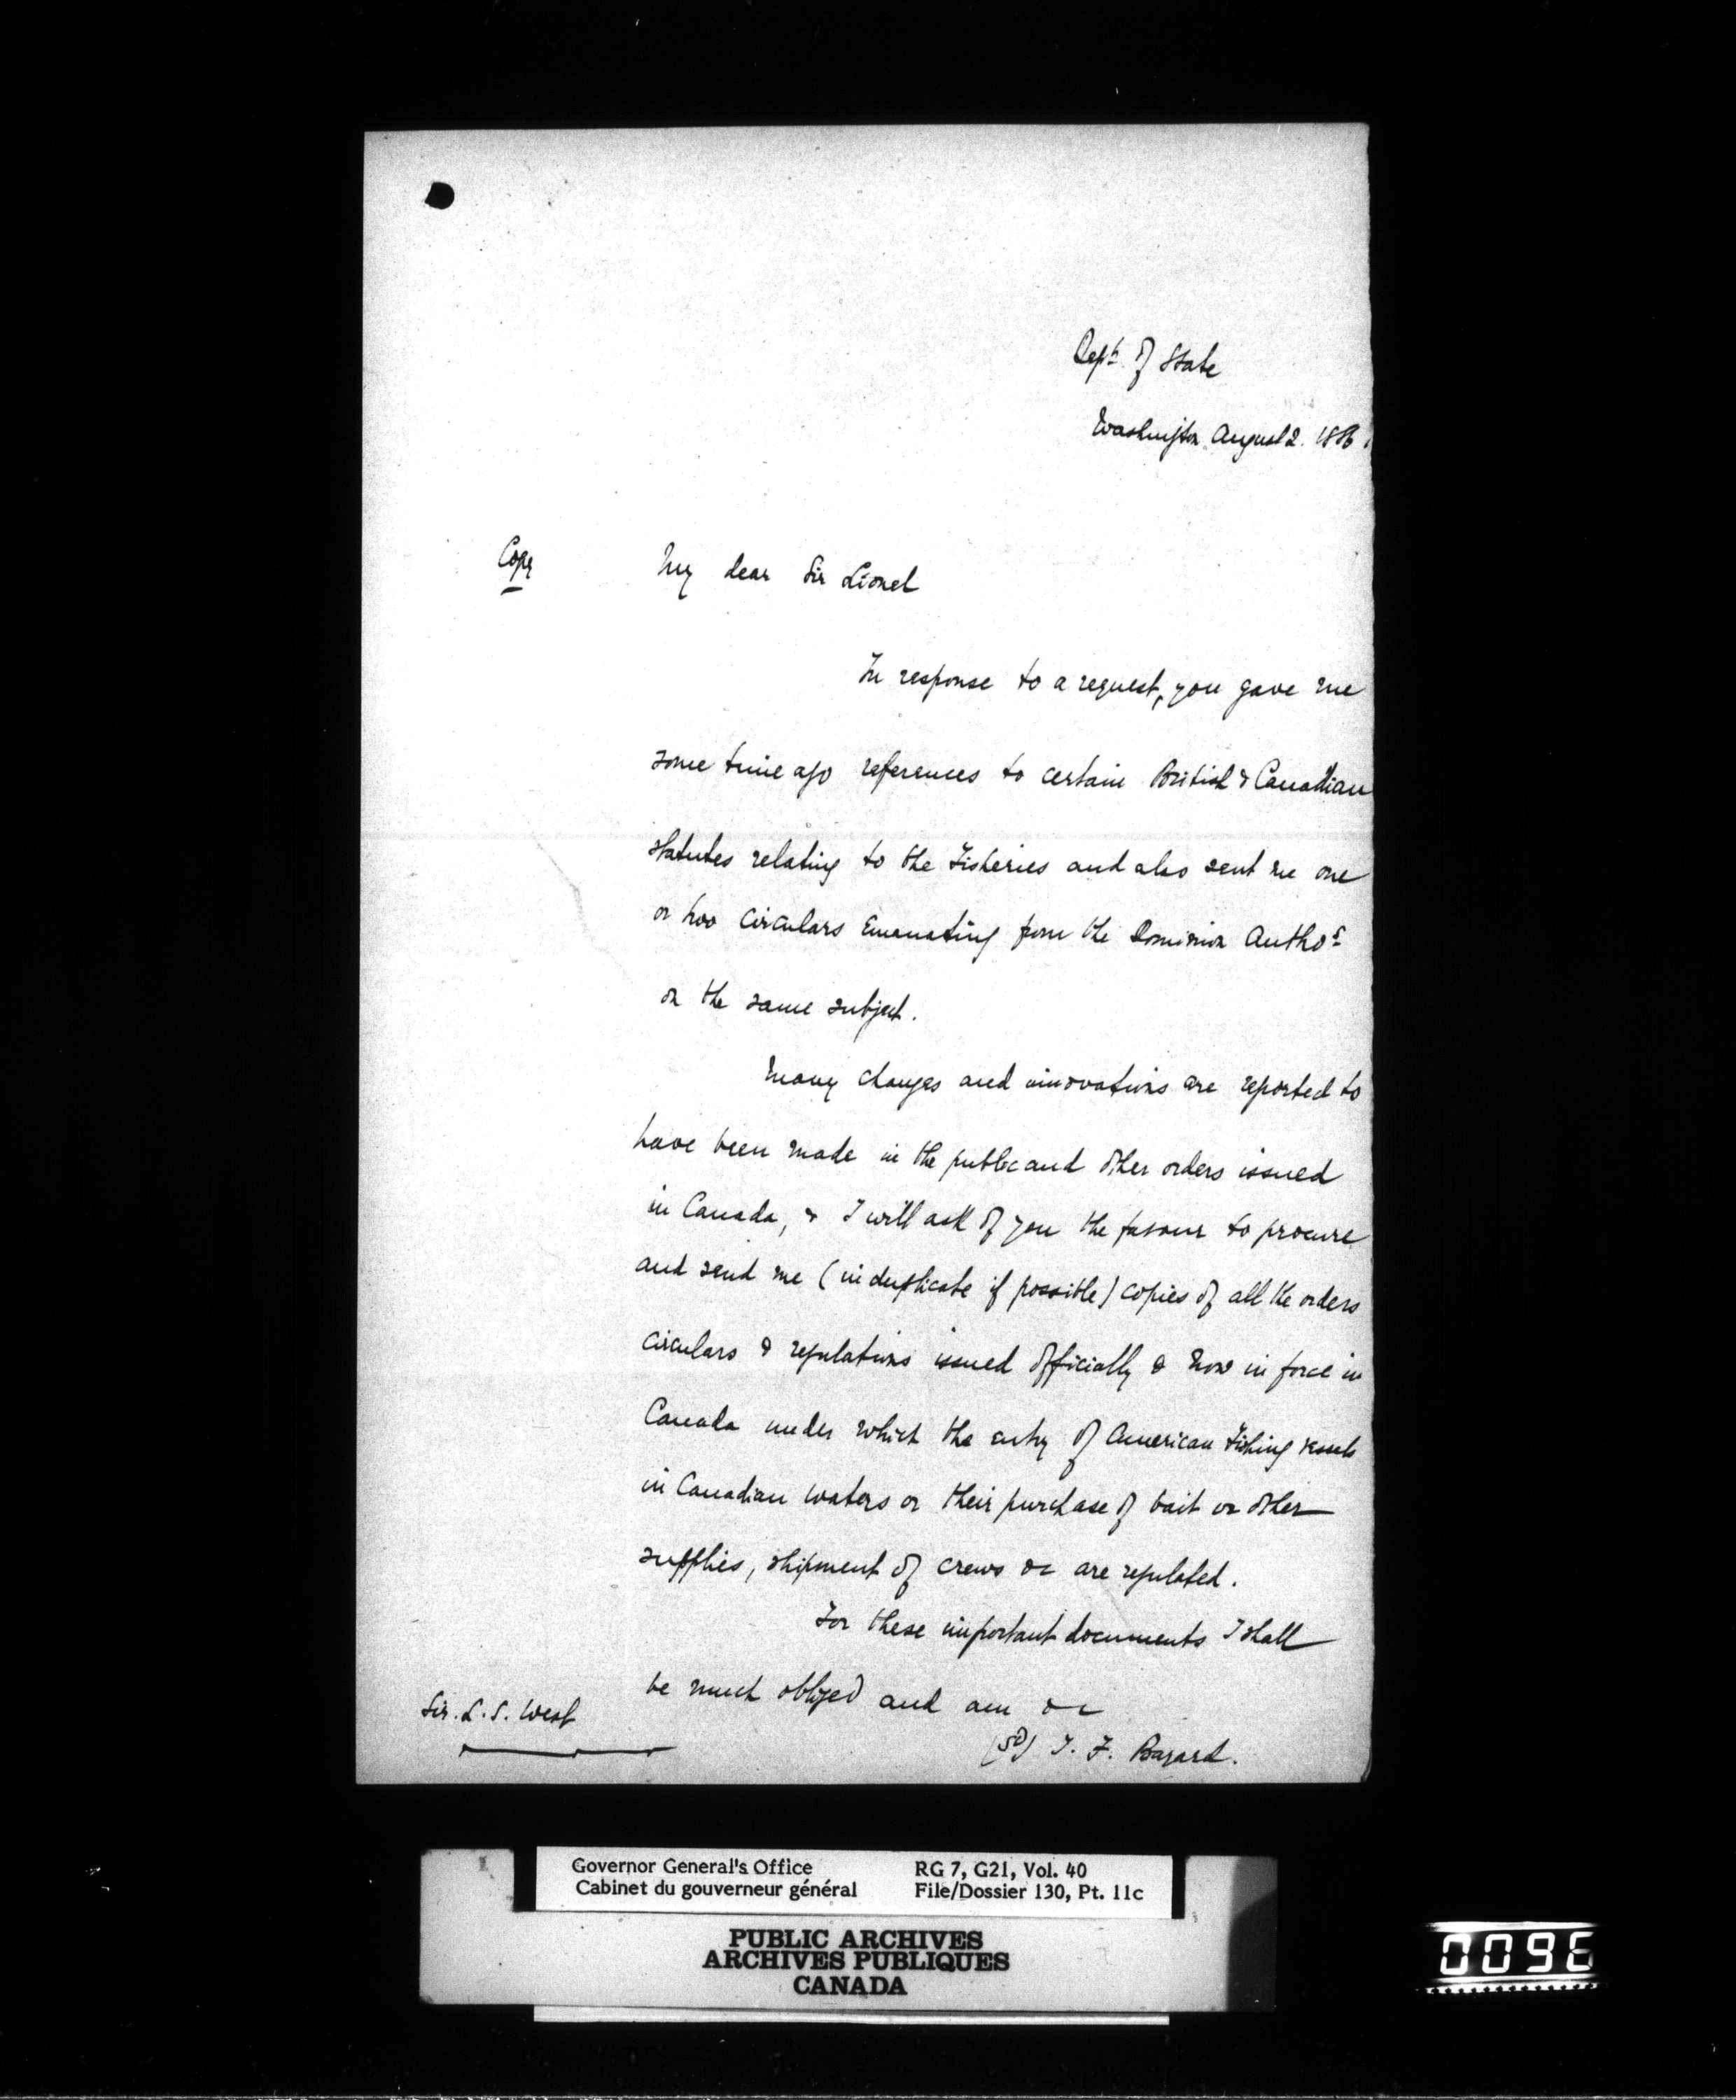 Dept. of State
Washington August 2. 1886.
Copy
My dear Sir Lionel
In response to a request, you gave me
some time ago references to certain British & Canadian
statutes relating to the Fisheries and also sent me one
or two circulars emanating from the Dominion Authos
on the same subject.
Many changes and innovations are reported to
have been made in the public and other orders issued
in Canada, & I will ask of you the favour to procure
and send me (in duplicate if possible) copies of all the orders
circulars & regulations issued officially & now in force in
Canada under which the entry of American Fishing vessels
in Canadian waters or their purchase of bait or other
supplies, shipment of crews &c are regulated.
For these important documents I shall
be much obliged and am &c
(Sd) T. F. Bayard.
Sir. L. S. West
Governor General's Office
Cabinet du gouverneur général
RG 7, G21, Vol. 40
File/Dossier 130, Pt. 11c
PUBLIC ARCHIVES
ARCHIVES PUBLIQUES
CANADA